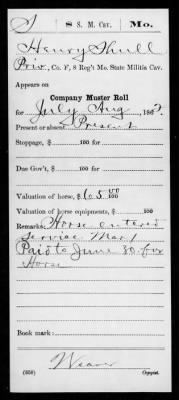 S | 8 S. M. Cav. | Mo.
Henry Shull
Priv., Co. F, 8 Reg't Mo. State Militia Cav.
Appears on
Company Muster Roll
for July Aug, 1862.
Present or absent Present
Stoppage, $ 100 for
Due Gov't, $ 100 for
Valuation of horse, $ 65 00/100
Valuation of horse equipments, $ 100
Remarks: Horse entered
service May 1
Paid to June 30. for
Horse
Book mark:
Weaver
(858) Copyist.